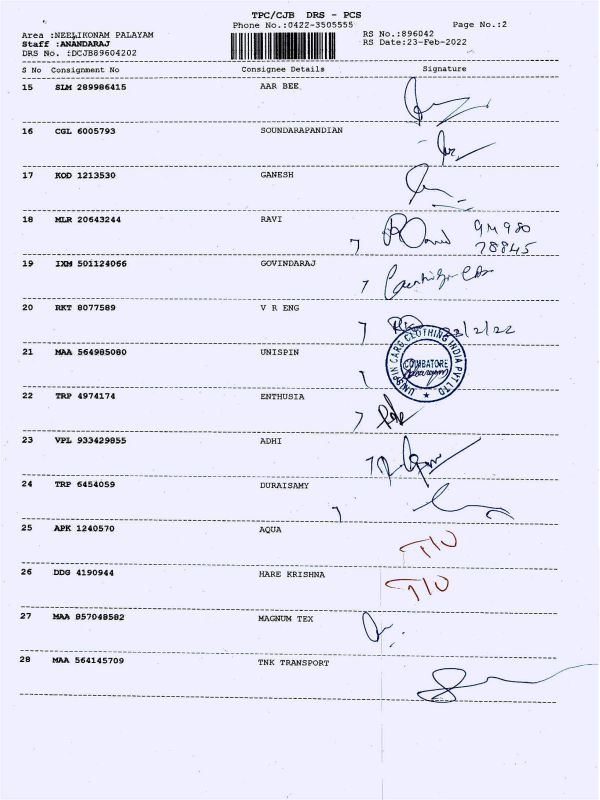 TPC/CJB DRS - PCS
Phone No.:0422-3505555 Page No.:2
Area :NEELIKONAM PALAYAM RS No.:896042
Staff :ANANDARAJ RS Date:23-Feb-2022
DRS No. :DCJB89604202
S No Consignment No Consignee Details Signature
15 SLM 289986415 AAR BEE
16 CGL 6005793 SOUNDARAPANDIAN
17 KOD 1213530 GANESH
18 MLR 20643244 RAVI
78845
19 IXM 501124066 GOVINDARAJ
20 RKT 8077589 V R ENG 22/2/22
21 MAA 564985080 UNISPIN
UNISPIN CARG CLOTHING INDIA PVT LTD
COIMBATORE
22 TRP 4974174 ENTHUSIA
23 VPL 933429855 ADHI
24 TRP 6454059 DURAISAMY
25 APK 1240570 AQUA
26 DDG 4190944 HARE KRISHNA
27 MAA 857048582 MAGNUM TEX
28 MAA 564145709 TNK TRANSPORT